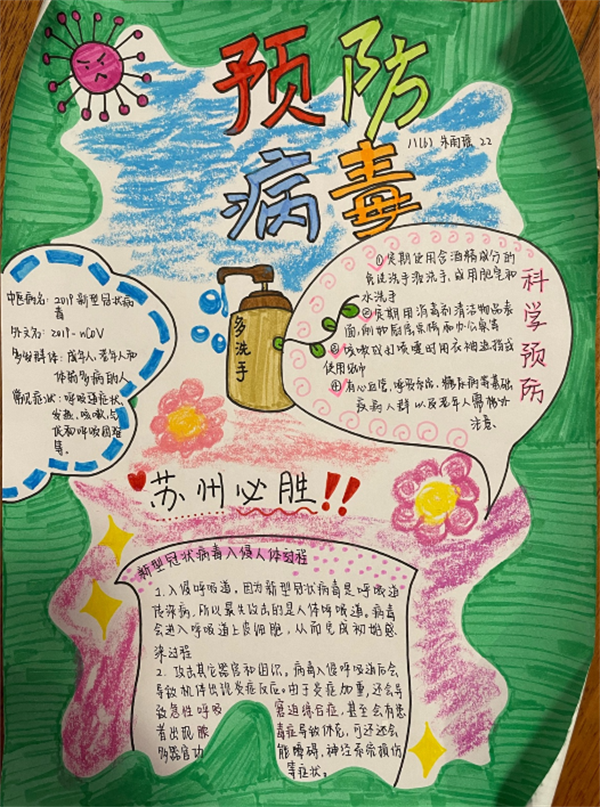 预防
病毒
八(6) 朱雨琼 22
中医病名: 2019新型冠状病
毒
外文名: 2019-nCOV
多发群体: 成年人、老年人和
体弱多病的人
常见症状: 呼吸道症状、
发热、咳嗽、
低和呼吸困难
等。
多洗手
①定期使用含酒精成分的
免洗洗手液洗手,或用肥皂和
水洗手
②定期用消毒剂清洁物品表
面,例如厨房
③咳嗽或打喷嚏时用衣袖
使用
④有心血管、呼吸系统、糖尿病
疾病人群以及老年人需格外
注意
科学预防
苏州必胜!!
新型冠状病毒入侵人体过程
1.入侵呼吸道,因为新型冠状病毒是呼吸道
传染病,所以最先攻击的是人体呼吸道。病毒
会进入呼吸道上皮细胞,从而完成初始感
染过程
2.攻击其它器官和组织。病毒入侵呼吸道后会
导致机体出现炎症反应。由于炎症加重,还会导
致急性呼吸窘迫综合症,甚至会有患
者出现脓毒症导致休克,可还还会
多器官功能障碍,神经系统损伤
等症状。